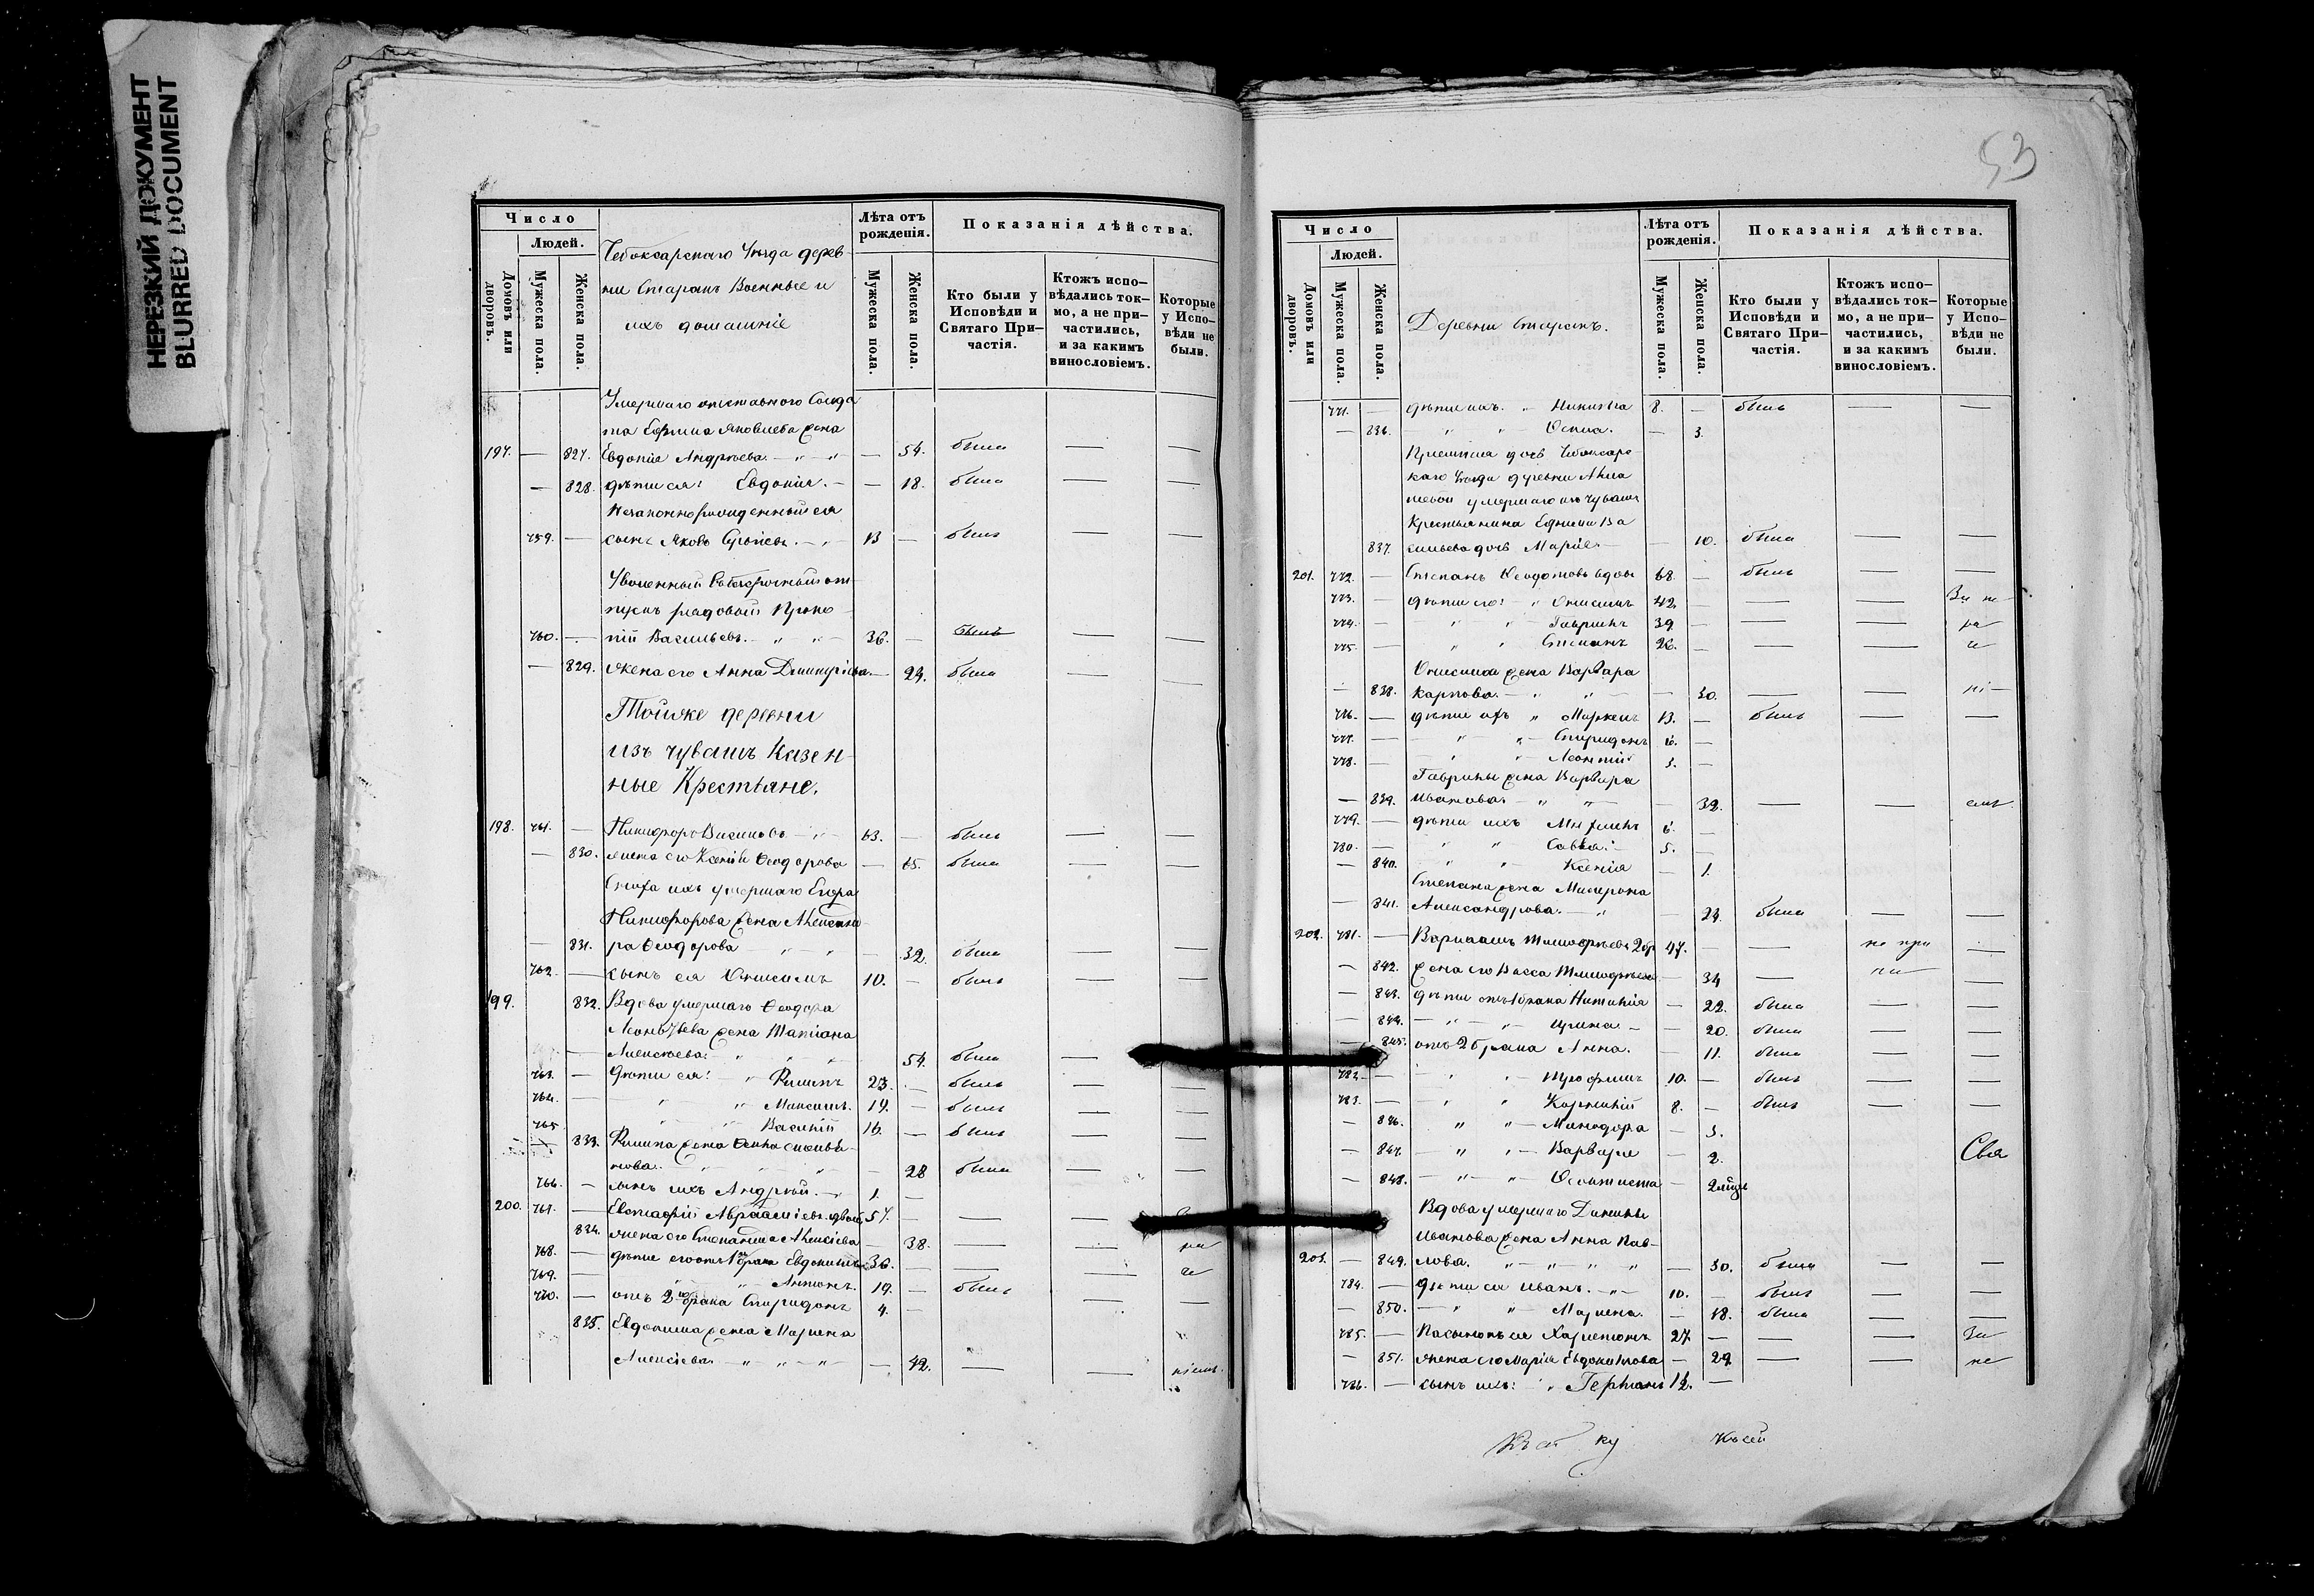 НЕРЕЗКИЙ ДОКУМЕНТ
BLURRED DOCUMENT
Число
Людей.
Домовъ или дворовъ.
Мужеска пола.
Женска пола.
Чебоксарскаго Уѣзда дерев-
ни Старакъ Военные и
ихъ домашніе
Лѣта отъ рожденія.
Мужеска пола.
Женска пола.
Показанія дѣйства.
Кто были у Исповѣди и Святаго При-частія.
Ктожъ испо-вѣдались ток-мо, а не при-частились, и за какимъ винословіемъ.
Которые у Испо-вѣди не были.
Умершаго отставного Солда
та Ефима Яковлева жена
197. — 827. Евдокія Андреева — 54. была — —
— 828. дѣти ея: Евдокія. — 18. была — —
Незаконнорожденный ея
759. — сынъ Яковъ 13 — былъ — —
Уволенный въ безсрочный от-
пускъ рядовой Проко-
760. — пій Васильевъ. 36. — былъ — —
— 829. жена его Анна Димитріева. — 24. была — —
Тойже деревни
изъ чувашъ Казен-
ные Крестьяне.
198. 761. — Никифоръ 63. — былъ — —
— 830. жена его Ксенія Ѳеодорова — 65. была — —
Сноха ихъ умершаго Егора
Никифорова жена Александ-
— 831. ра Ѳеодорова — 32. была — —
762. — сынъ ея Онисимъ 10. — былъ — —
199. 832. Вдова умершаго Ѳеодора
Леонтьева жена Татіана
— Алексѣева. 54. была —
763. — Дѣти ея: Филипъ 23. — былъ — —
764. — Максимъ. 19. — былъ — —
765 Василій 16. — былъ — —
833. Филипа жена
нова. — 28 была — —
766. — сынъ ихъ Андрей. 1. —
200. 767. — Евстафій Авраамiевъ 57. — — —
834. жена его Степанида Алексіева — 38. — —
768. — дѣти его отъ 1 брака Евдокимъ 36. — — —
769. — Антонъ. 19. — былъ — —
770. — отъ 2го брака Спиридонъ 4. —
835. Евдокима жена Марина
Алексіева. — 42. — —
53
Число
Людей.
Домовъ или дворовъ.
Мужеска пола.
Женска пола.
Деревни Старакъ.
Лѣта отъ рожденія.
Мужеска пола.
Женска пола.
Показанія дѣйства.
Кто были у Исповѣди и Святаго При-частія.
Ктожъ испо-вѣдались ток-мо, а не при-частились, и за какимъ винословіемъ.
Которые у Испо-вѣди не были.
771. — дѣти ихъ. Никита 8. — былъ — —
— 836. — 3.
дочь Чебоксарс-
каго Уѣзда деревни
умершаго изъ чувашъ
Крестьянина Ефима Ва
837. сильева дочь Марія — 10. была — —
201. 772. — Степанъ Ѳеодотовъ вдовъ 68. — былъ — —
773. — дѣти его: Онисимъ 42. — — —
774. — Гавріилъ 39. — —
775. — Степанъ 26. — — —
Онисима жена Варвара
— 838. Карпова. — 30. — —
776. — дѣти ихъ Маркелъ 13. — былъ — —
777. — Спиридонъ 6. —
778. — Леонтій 3. —
Гавріила жена Варвара
— 839. Иванова. — 32. — —
779. — дѣти ихъ 6. —
780. — Савва. 5. —
— 840. Ксенія — 1.
Степана жена Матрона
— 841. Александрова. — 23. была — —
202. 781. — Варлаамъ Тимофеевъ 2бр 47. — — не при —
— 842. жена его Васса Тимофеева — 34 — —
— 843. дѣти отъ 1 брака Наталія — 22. была — —
— 844. Ирина. — 20. была — —
— 845. отъ 2 брака Анна. — 11. была — —
782. — Трофимъ 10. — былъ — —
783. — Корнилій 8. — былъ — —
— 846. Минодора — 3.
— 847. Варвара — 2.
— 848. Ѳеоктиста — 2 мѣся
Вдова умершаго
Иванова жена Анна Пав-
203. — 849. лова. — 30. была — —
784. — дѣти ея Иванъ. 10. — былъ — —
— 850. Марина. — 18. была — —
785. — Пасынокъ ея Харитонъ 27. — — —
— 851. жена его Марія Евдокимова — 29 — — не
786. — сынъ ихъ: Германъ 1½. —